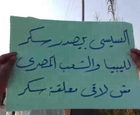 السيسي بيصدر سكر
لليبيا والشعب المصرى
مش لاقى معلقة سكر